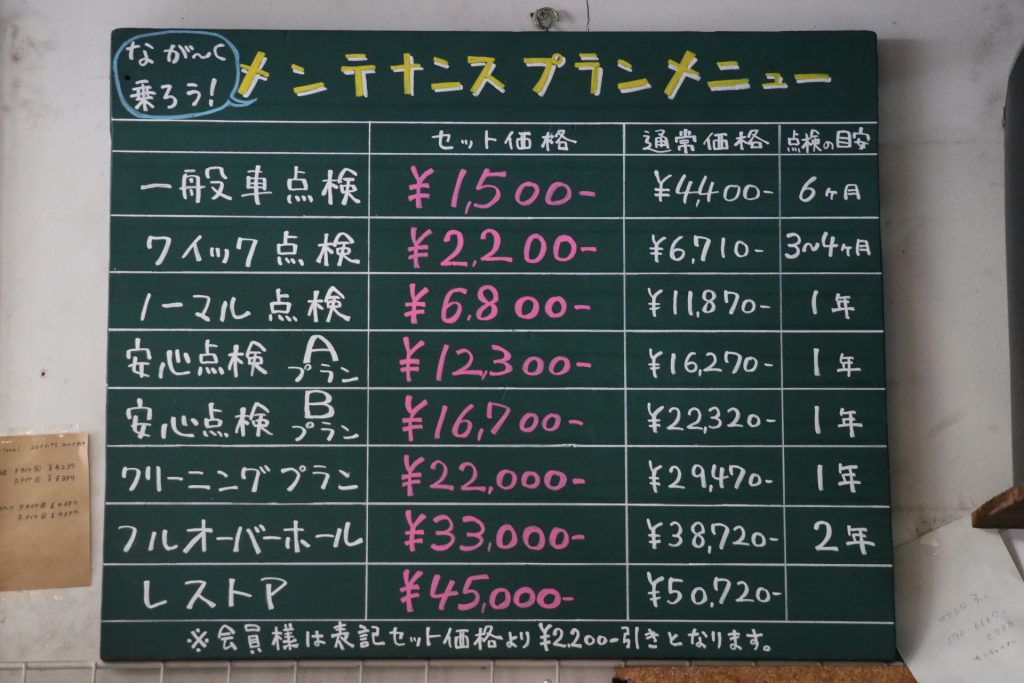 なが〜く
乗ろう!
メンテナンスプランメニュー
セット価格 通常価格 点検の目安
一般車点検 ¥1,500- ¥4,400- 6ヶ月
クイック点検 ¥2,200- ¥6,710- 3~4ヶ月
ノーマル点検 ¥6,800- ¥11,870- 1年
安心点検 Aプラン ¥12,300- ¥16,270- 1年
安心点検 Bプラン ¥16,700- ¥22,320- 1年
クリーニングプラン ¥22,000- ¥29,470- 1年
フルオーバーホール ¥33,000- ¥38,720- 2年
レストア ¥45,000- ¥50,720-
※会員様は表記セット価格より¥2,200-引きとなります。